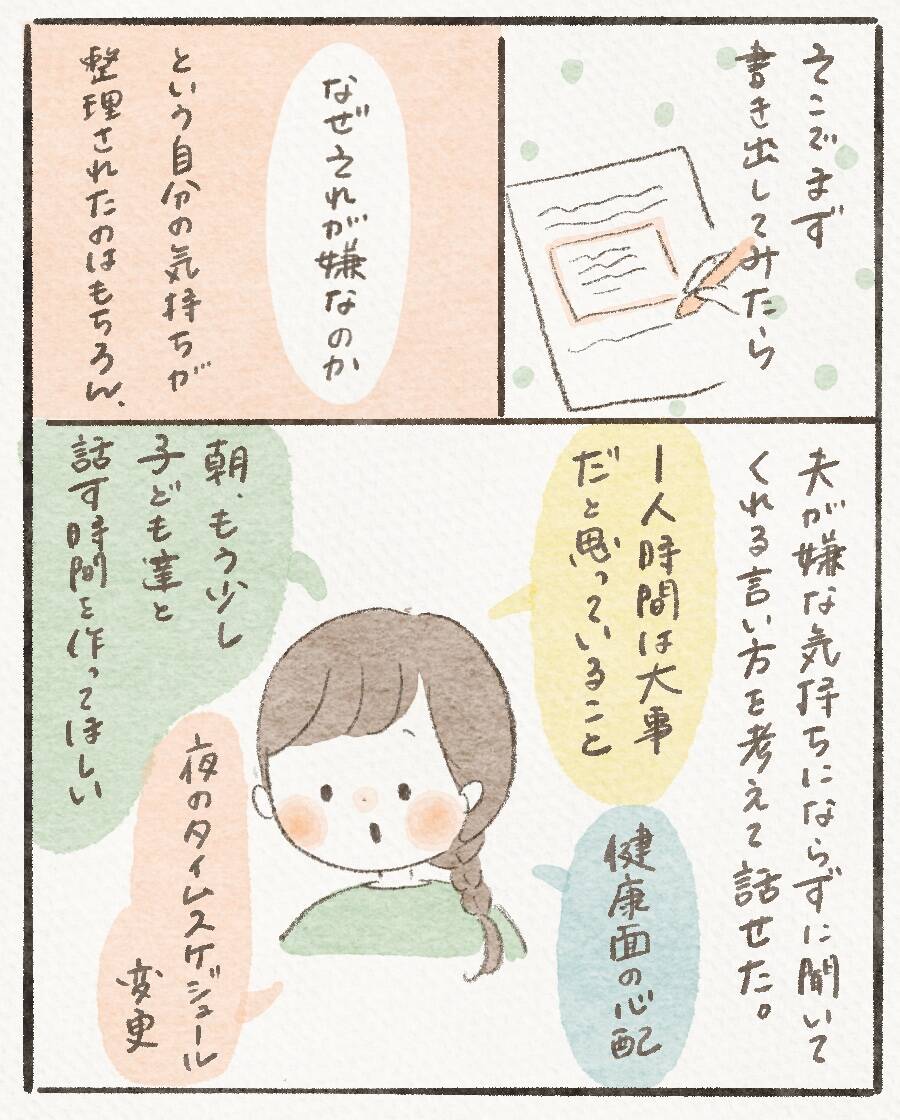 そこでまず
書き出してみたら
なぜそれが嫌なのか
という自分の気持ちが
整理されたのはもちろん、
夫が嫌な気持ちにならずに聞いて
くれる言い方を考えて話せた。
1人時間は大事
だと思っていること
健康面の心配
朝、もう少し
子ども達と
話す時間を作ってほしい
夜のタイムスケジュール
変更